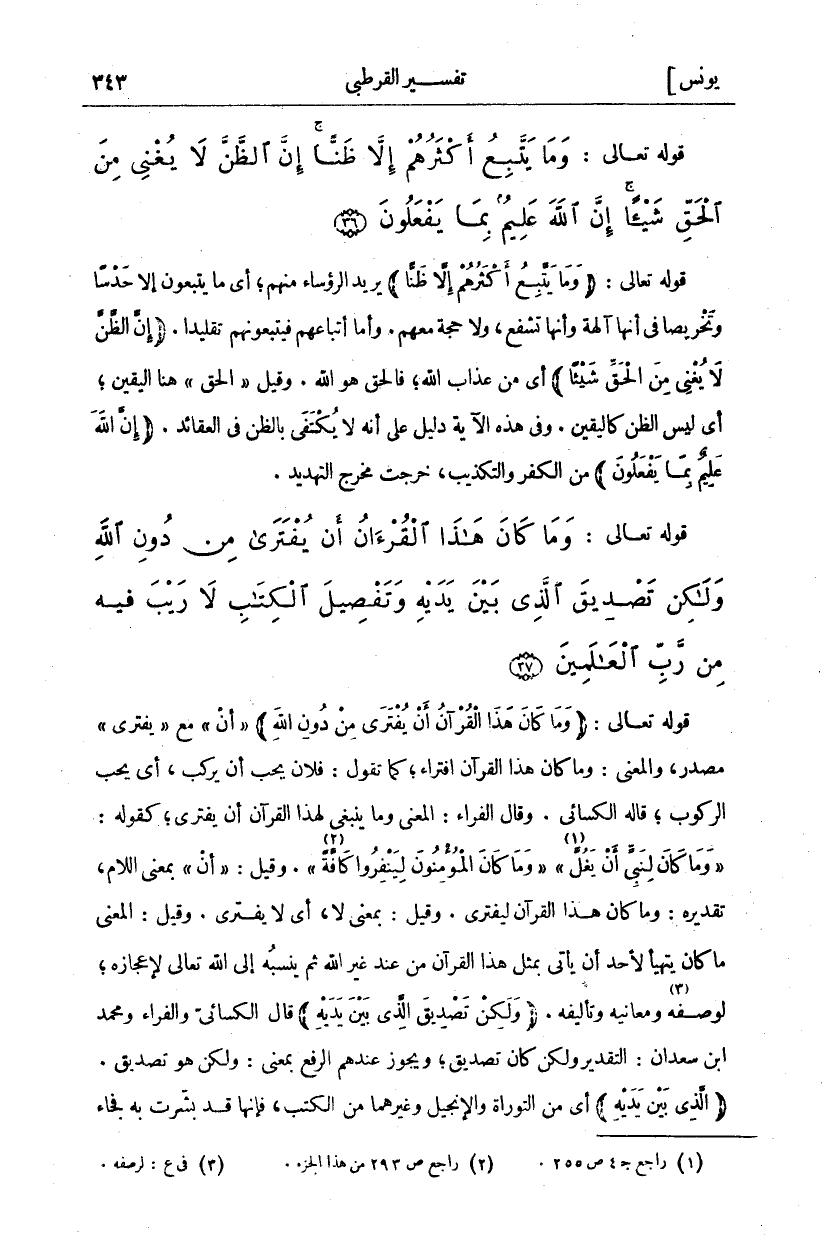 يونس] تفسير القرطبي ٣٤٣
قوله تعالى : وَمَا يَتَّبِعُ أَكْثَرُهُمْ إِلَّا ظَنًّا ۚ إِنَّ ٱلظَّنَّ لَا يُغْنِى مِنَ
ٱلْحَقِّ شَيْـًٔا ۚ إِنَّ ٱللَّهَ عَلِيمٌۢ بِمَا يَفْعَلُونَ ٣٦
قوله تعالى : ﴿ وَمَا يَتَّبِعُ أَكْثَرُهُمْ إِلَّا ظَنًّا ﴾ يريد الرؤساء منهم؛ أى ما يتبعون إلا حَدْسًا
وتَخْريصا فى أنها آلهة وأنها تشفع، ولا حجة معهم. وأما أتباعهم فيتبعونهم تقليدا. ﴿ إِنَّ الظَّنَّ
لَا يُغْنِى مِنَ الْحَقِّ شَيْئًا ﴾ أى من عذاب الله؛ فالحق هو الله . وقيل « الحق » هنا اليقين ؛
أى ليس الظن كاليقين . وفى هذه الآية دليل على أنه لا يُكْتَفَى بالظن فى العقائد . ﴿ إِنَّ اللَّهَ
عَلِيمٌ بِمَا يَفْعَلُونَ ﴾ من الكفر والتكذيب، خرجت مخرج التهديد .
قوله تعالى : وَمَا كَانَ هَـٰذَا ٱلْقُرْءَانُ أَن يُفْتَرَىٰ مِن دُونِ ٱللَّهِ
وَلَـٰكِن تَصْدِيقَ ٱلَّذِى بَيْنَ يَدَيْهِ وَتَفْصِيلَ ٱلْكِتَـٰبِ لَا رَيْبَ فِيهِ
مِن رَّبِّ ٱلْعَـٰلَمِينَ ٣٧
قوله تعالى : ﴿ وَمَا كَانَ هَذَا الْقُرْآنُ أَنْ يُفْتَرَى مِنْ دُونِ اللَّهِ ﴾ « أنْ » مع « يفترى »
مصدر، والمعنى : وما كان هذا القرآن افتراء ؛ كما تقول : فلان يحب أن يركب ، أى يحب
الركوب ؛ قاله الكسائى . وقال الفراء : المعنى وما ينبغى لهذا القرآن أن يفترى ؛ كقوله :
« وَمَا كَانَ لِنَبِيٍّ أَنْ يَغُلَّ »(١) « وَمَا كَانَ الْمُؤْمِنُونَ لِيَنْفِرُوا كَافَّةً »(٢) . وقيل : « أنْ » بمعنى اللام،
تقديره : وما كان هذا القرآن ليفترى . وقيل : بمعنى لا، أى لا يفترى . وقيل : المعنى
ما كان يتهيأ لأحد أن يأتى بمثل هذا القرآن من عند غير الله ثم ينسبُه إلى الله تعالى لإعجازه ؛
لوصفه(٣) ومعانيه وتأليفه . ﴿ وَلَكِنْ تَصْدِيقَ الَّذِى بَيْنَ يَدَيْهِ ﴾ قال الكسائىّ والفراء ومحمد
ابن سعدان : التقدير ولكن كان تصديق؛ ويجوز عندهم الرفع بمعنى : ولكن هو تصديق .
﴿ الَّذِى بَيْنَ يَدَيْهِ ﴾ أى من التوراة والإنجيل وغيرهما من الكتب، فإنها قد بشّرت به فجاء
(١) راجع جـ ٤ ص ٢٥٥ . (٢) راجع ص ٢٩٣ من هذا الجزء . (٣) فى ع : لرصفه .